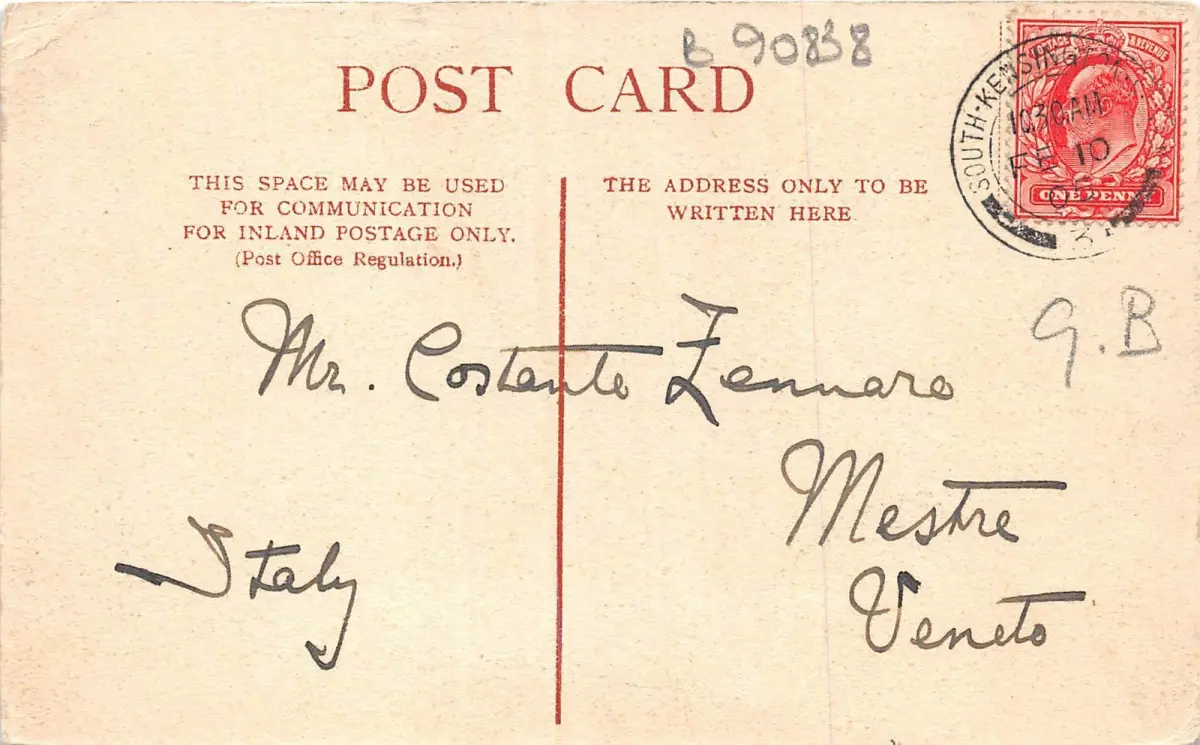 B 90838
POST CARD
THIS SPACE MAY BE USED
FOR COMMUNICATION
FOR INLAND POSTAGE ONLY.
(Post Office Regulation.)
THE ADDRESS ONLY TO BE
WRITTEN HERE
REVENUE
ONE PENNY
SOUTH-KENSINGTON
10.30 AM
FE 10
G.B
Mr. Costante Zennaro
Mestre
Veneto
Italy